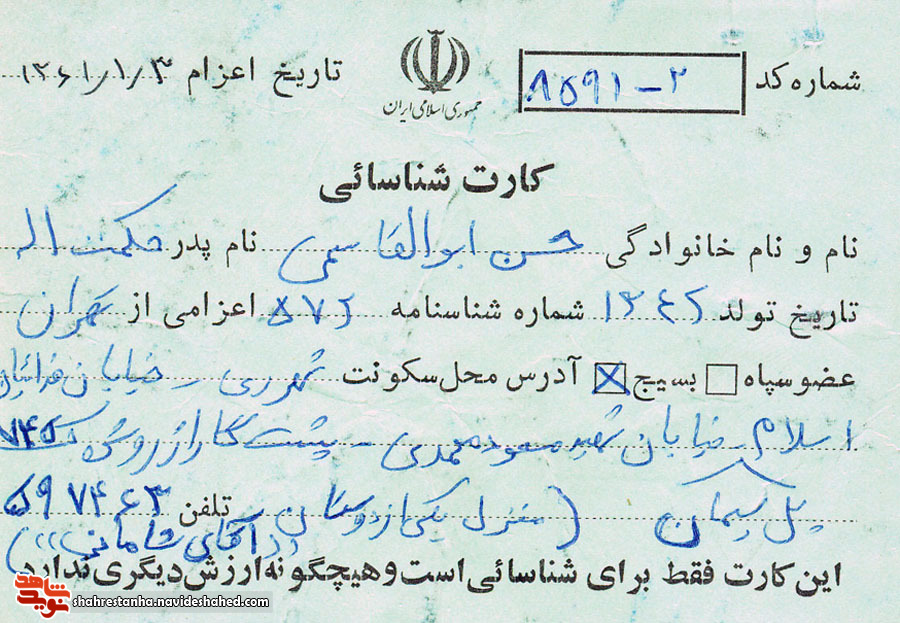 شماره کد ۸۵۹۱-۲
جمهوری اسلامی ایران
تاریخ اعزام ۱۳۶۱/۱/۳
کارت شناسائی
نام و نام خانوادگی حسن ابوالقاسمی نام پدر حکمت اله
تاریخ تولد شماره شناسنامه اعزامی از تهران
عضو سپاه بسیج آدرس محل سکونت شهرری - خیابان فدائیان
اسلام - خیابان شهید مسعود محمدی - پشت گاراژ
پل سیمان (منزل یکی از دوستان تلفن ۵۹۷۴۶۳
((آقای شامانی))
این کارت فقط برای شناسائی است و هیچگونه ارزش دیگری ندارد
نوید شاهد
shahrestanha.navideshahed.com